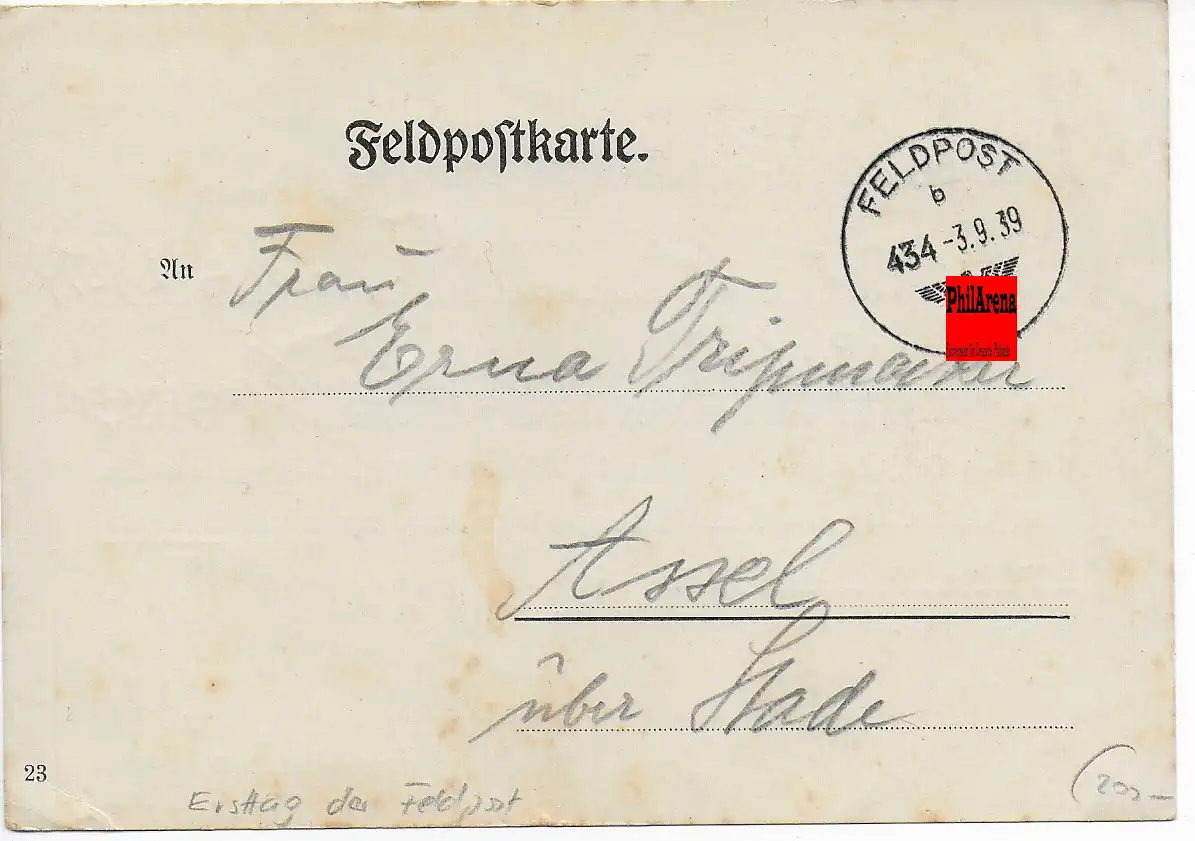 Feldpostkarte.
FELDPOST
b
434 -3.9.39
PhilArena
An Frau
Erna Tripmacker
Assel
über Stade
23
Ersttag der Feldpost